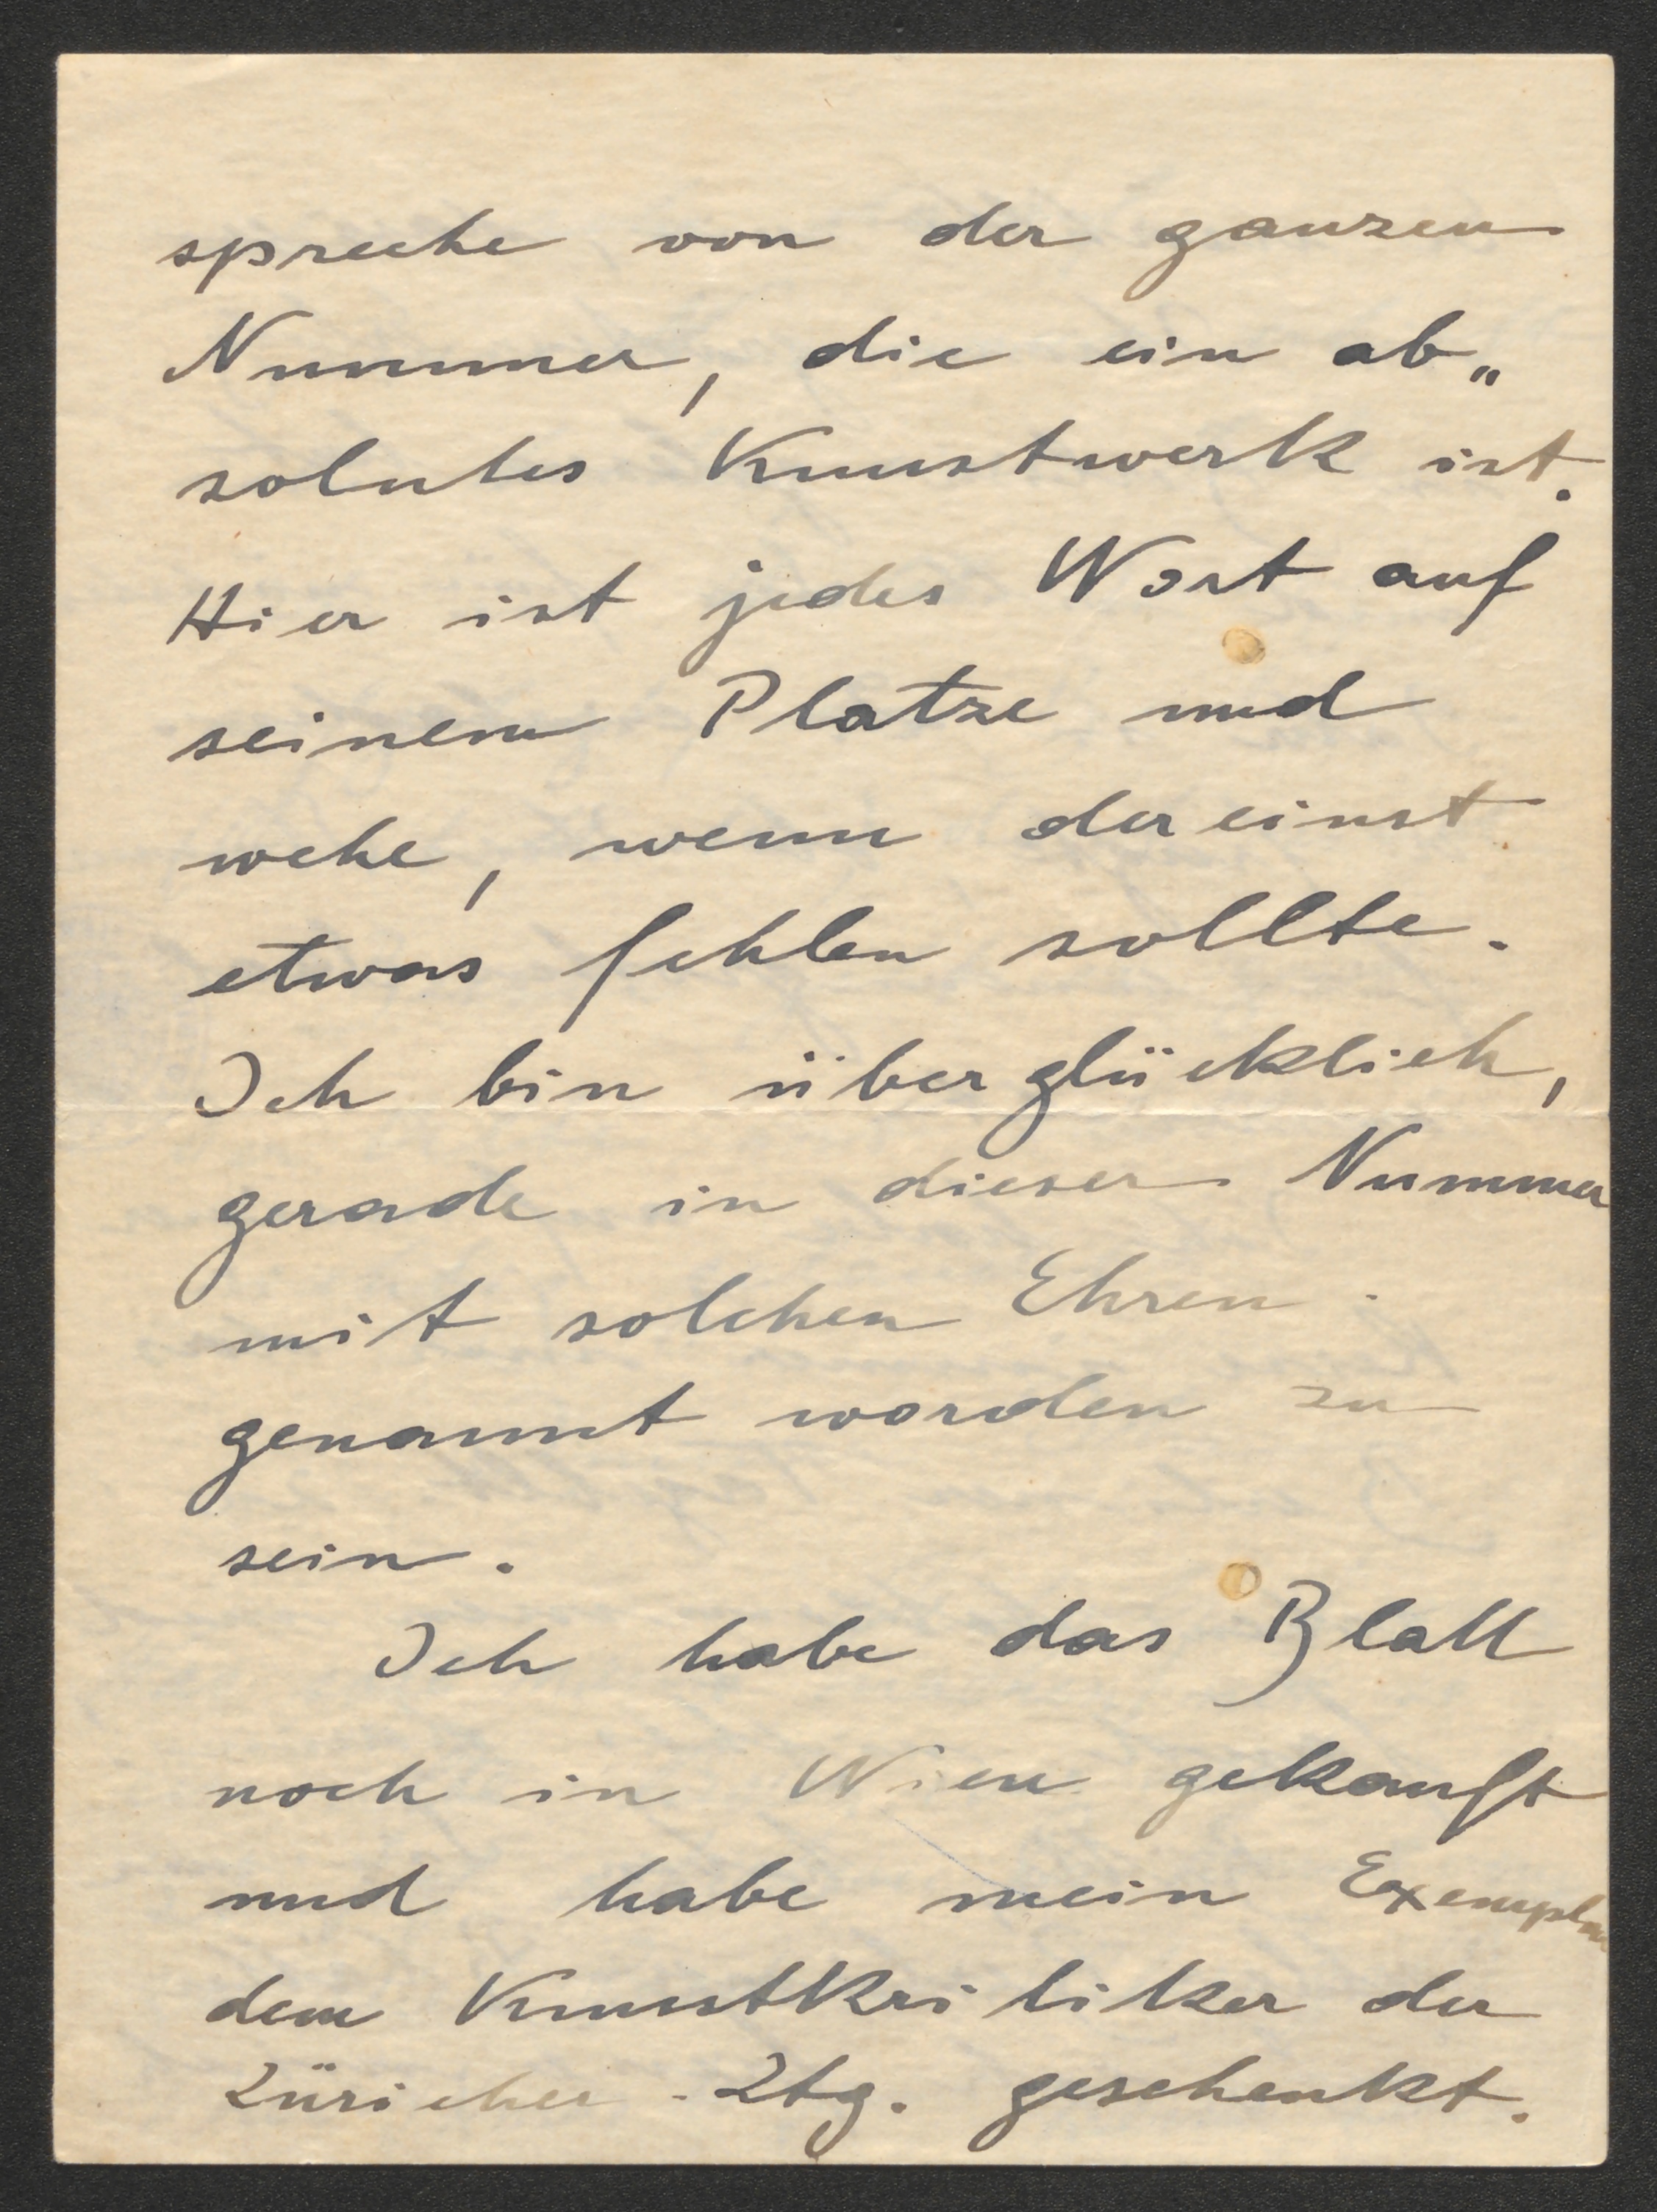 spreche von der ganzen
Nummer, die ein ab„
solutes Kunstwerk ist.
Hier ist jedes Wort auf
seinem Platze und
wehe, wenn dereinst
etwas fehlen sollte.
Ich bin überglücklich,
gerade in dieser Nummer
mit solchen Ehren
genannt worden zu
sein.
Ich habe das Blatt
noch in Wien gekauft
und habe mein Exemplar
dem Kunstkritiker der
Züricher-Ztg. geschenkt.